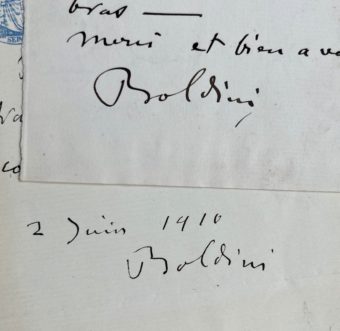 bras —
Merci et bien a vo
Boldini
2 Juin 1910
Boldini